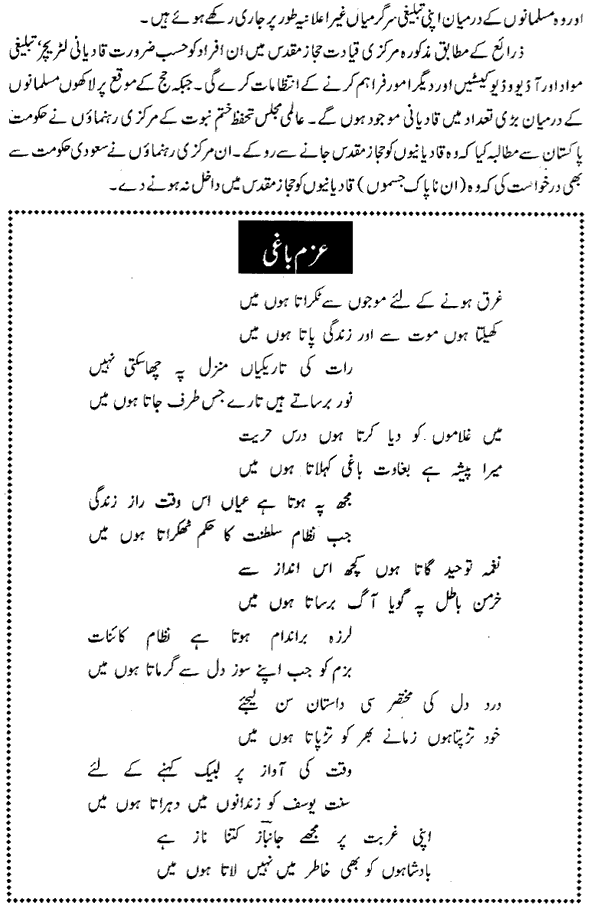 اور وہ مسلمانوں کے درمیان اپنی تبلیغی سرگرمیاں غیر اعلانیہ طور پر جاری رکھے ہوئے ہیں۔
ذرائع کے مطابق مذکورہ مرکزی قیادت حجاز مقدس میں ان افراد کو حسب ضرورت قادیانی لٹریچر' تبلیغی
مواد اور آڈیو وڈیو کیسٹیں اور دیگر امور فراہم کرنے کے انتظامات کرے گی۔ جبکہ حج کے موقع پر لاکھوں مسلمانوں
کے درمیان بڑی تعداد میں قادیانی موجود ہوں گے۔ عالمی مجلس تحفظ ختم نبوت کے مرکزی رہنماؤں نے حکومت
پاکستان سے مطالبہ کیا کہ وہ قادیانیوں کو حجاز مقدس جانے سے روکے۔ ان مرکزی رہنماؤں نے سعودی حکومت سے
بھی درخواست کی کہ وہ (ان ناپاک جسموں) قادیانیوں کو حجاز مقدس میں داخل نہ ہونے دے۔
عزم باغی
غرق ہونے کے لئے موجوں سے ٹکراتا ہوں میں
کھیلتا ہوں موت سے اور زندگی پاتا ہوں میں
رات کی تاریکیاں منزل پہ چھا سکتی نہیں
نور برساتے ہیں تارے جس طرف جاتا ہوں میں
میں غلاموں کو دیا کرتا ہوں درس حریت
میرا پیشہ ہے بغاوت باغی کہلاتا ہوں میں
مجھ پہ ہوتا ہے عیاں اس وقت راز زندگی
جب نظام سلطنت کا حکم ٹھکراتا ہوں میں
نغمہ توحید گاتا ہوں کچھ اس انداز سے
خرمن باطل پہ گویا آگ برساتا ہوں میں
لرزہ براندام ہوتا ہے نظام کائنات
بزم کو جب اپنے سوز دل سے گرماتا ہوں میں
درد دل کی مختصر سی داستان سن لیجئے
خود تڑپتاہوں زمانے بھر کو تڑپاتا ہوں میں
وقت کی آواز پر لبیک کہنے کے لئے
سنت یوسف کو زندانوں میں دہراتا ہوں میں
اپنی غربت پر مجھے جانبازؔ کتنا ناز ہے
بادشاہوں کو بھی خاطر میں نہیں لاتا ہوں میں